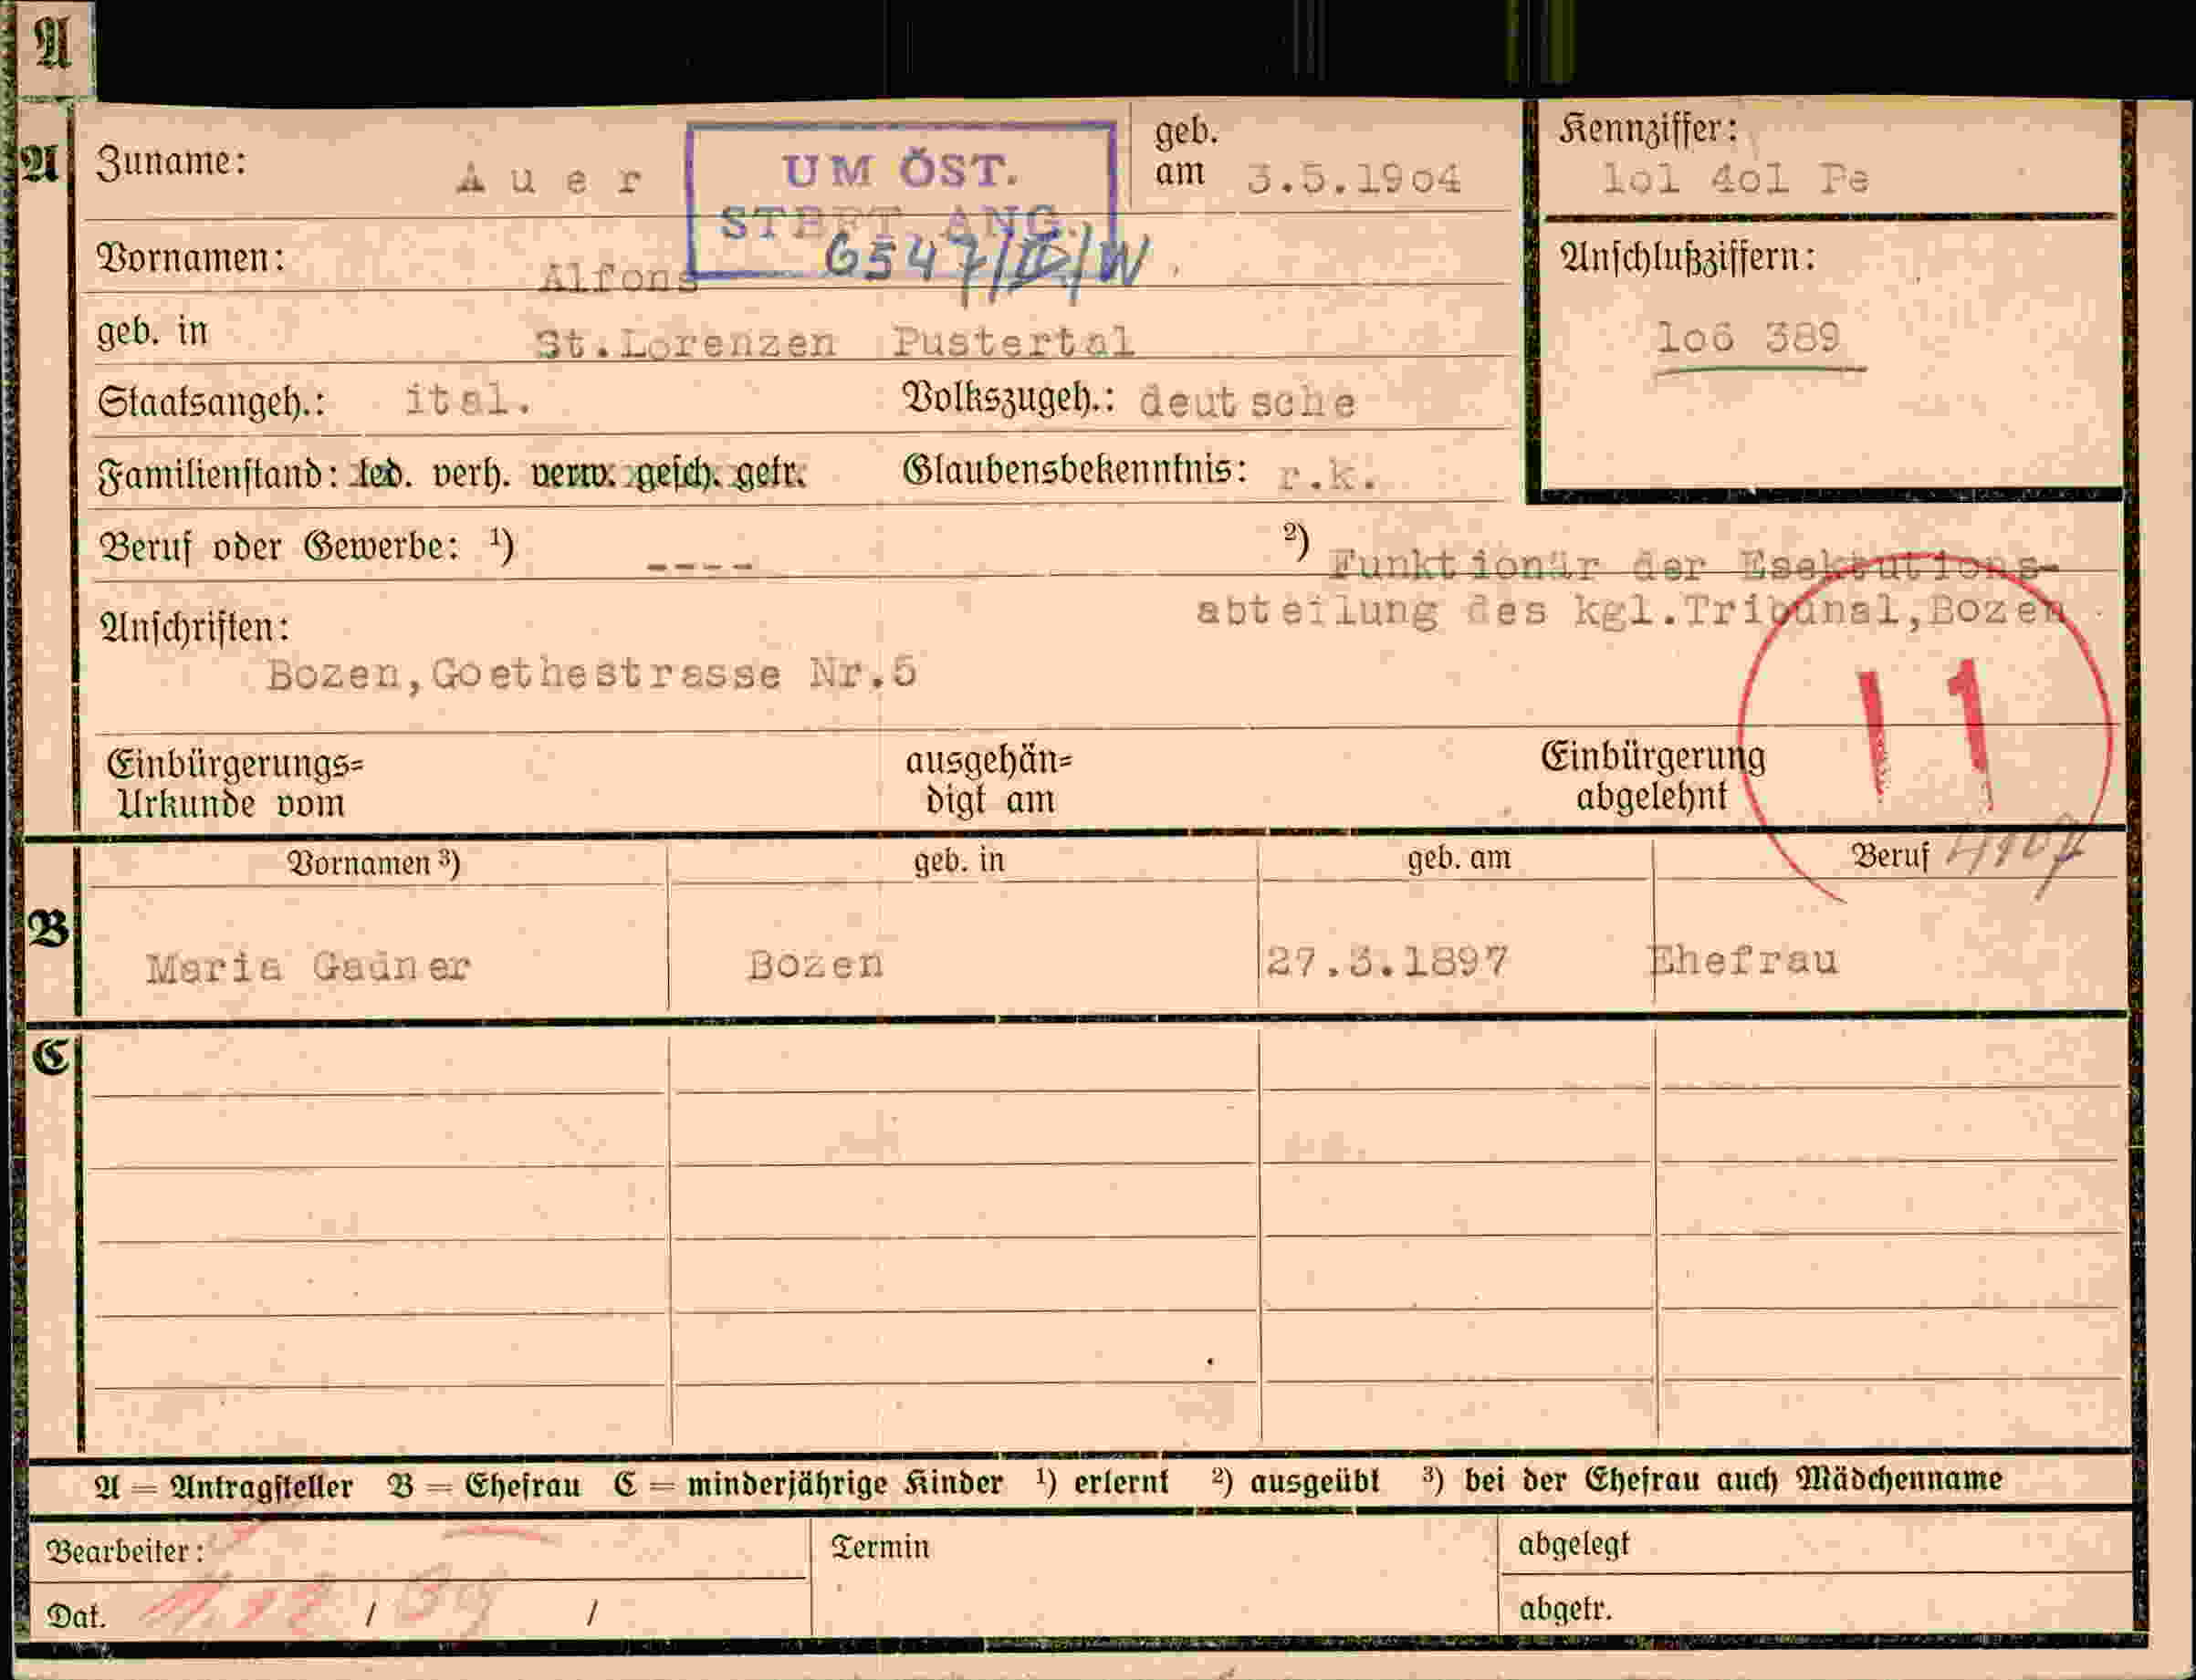 A
A
Zuname: Auer
UM ÖST.
STBFT. ANG.
6547/II/W
geb.
am 3.5.19o4
Kennziffer:
lol 4ol Pe
Vornamen: Alfons
Anschlußziffern:
lo6 389
geb. in St.Lorenzen Pustertal
Staatsangeh.: ital. Volkszugeh.: deutsche
Familienstand: led. verh. verw. gesch. getr. Glaubensbekenntnis: r.k.
Beruf oder Gewerbe: ¹) ---- ²) Funktionär der Esektutions-
abteilung des kgl.Tribunal,Bozen
Anschriften:
Bozen,Goethestrasse Nr.5
11
Einbürgerungs=
Urkunde vom
ausgehän=
digt am
Einbürgerung
abgelehnt
B
Vornamen ³) geb. in geb. am Beruf
Maria Gadner Bozen 27.3.1897 Ehefrau
C
A = Antragsteller B = Ehefrau C = minderjährige Kinder ¹) erlernt ²) ausgeübt ³) bei der Ehefrau auch Mädchenname
Bearbeiter: Termin abgelegt
Dat. / 39 / abgetr.